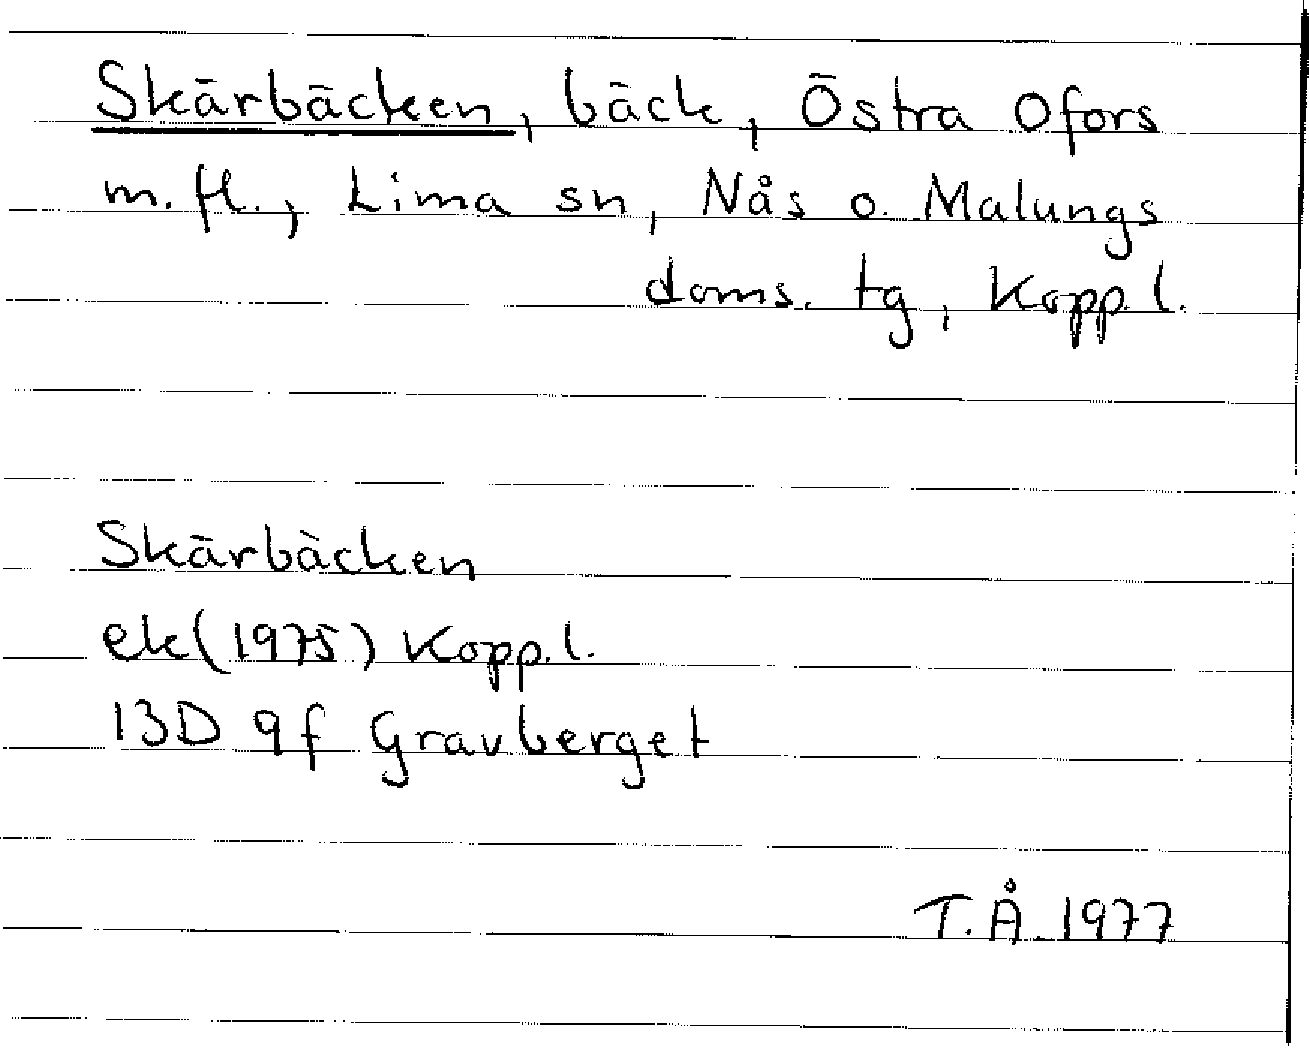 Skärbäcken, bäck, Östra Ofors
m. fl., Lima sn, Nås o. Malungs
doms. tg, Kopp.l.
Skärbäcken
ek(1975) Kopp.l.
13D 9f Gravberget
T.Å. 1977